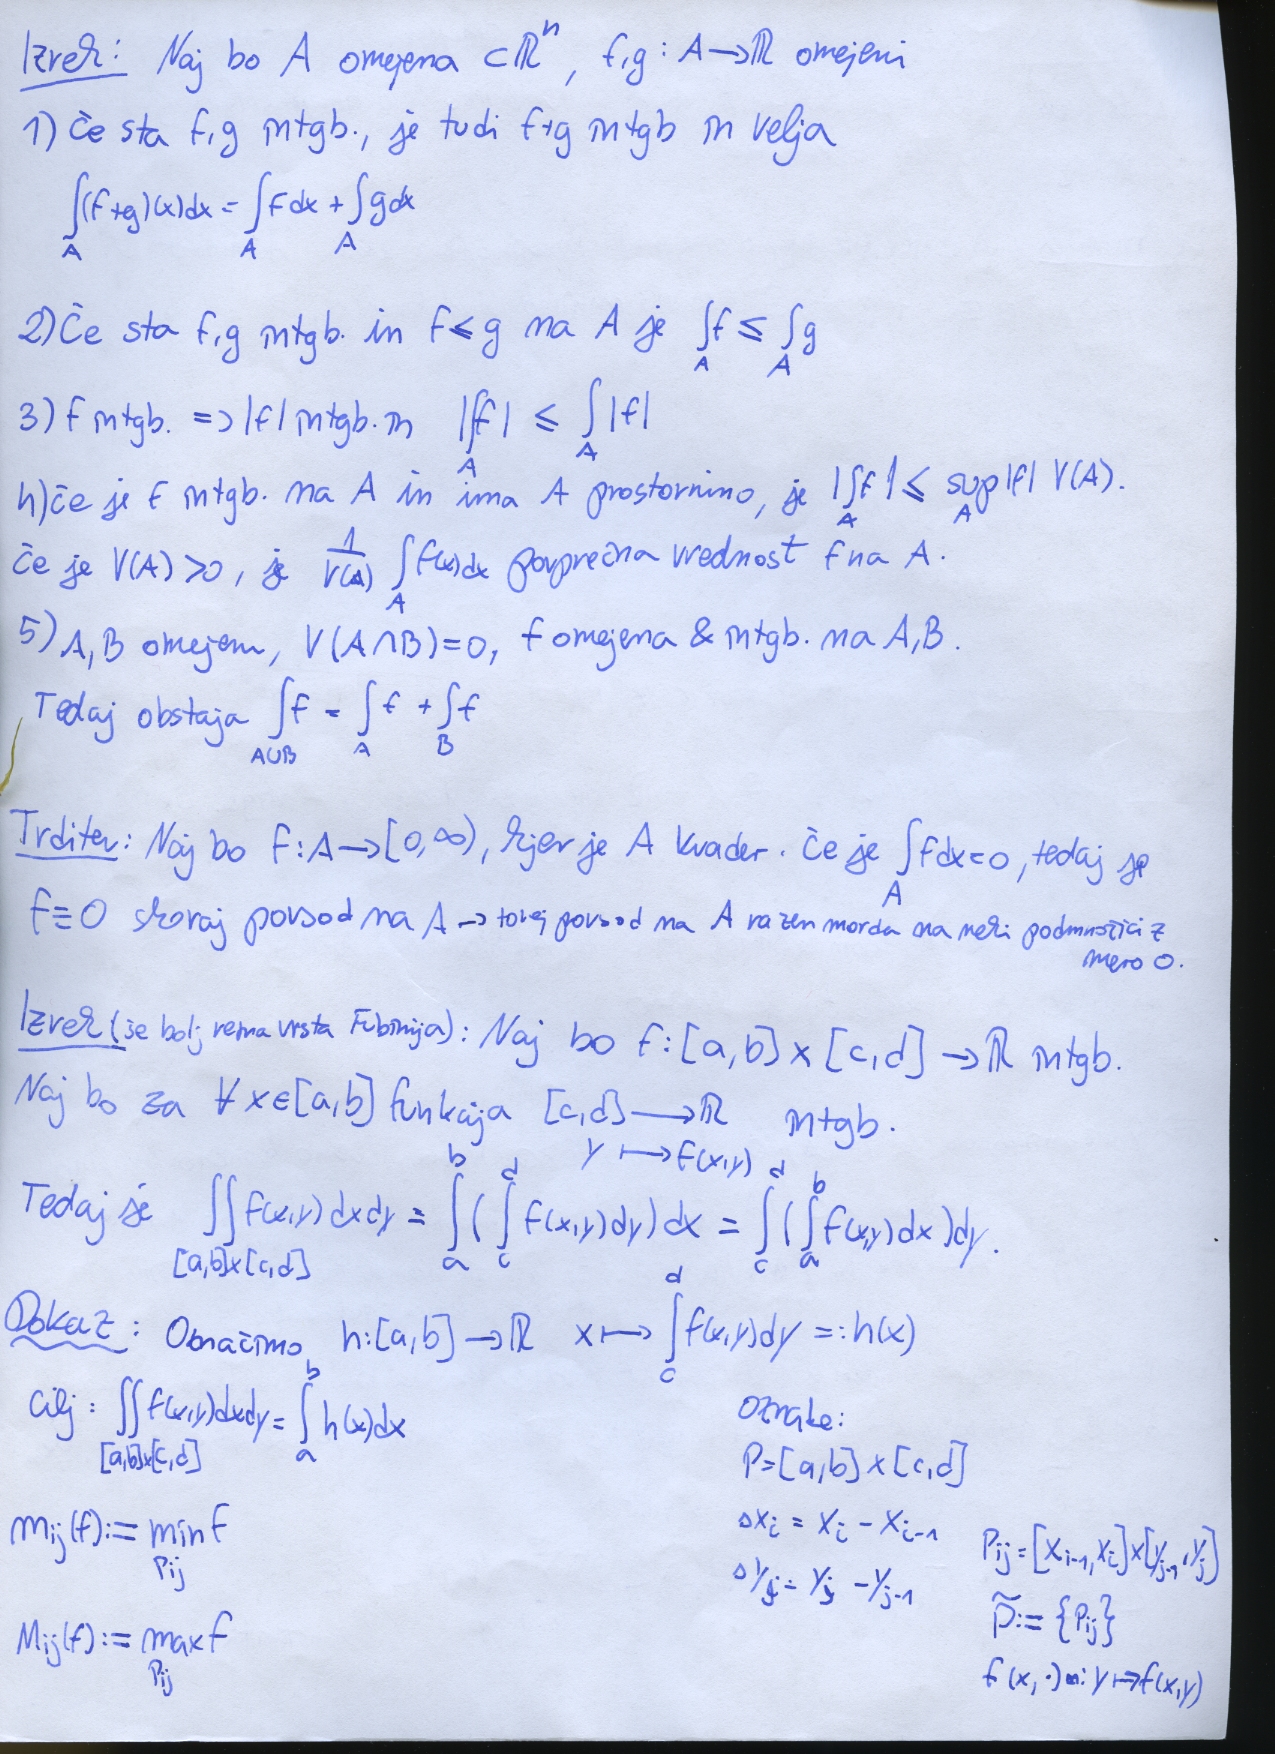 Izrek: Naj bo A omejena ⊂ ℝⁿ, f,g : A → ℝ omejeni
1) Če sta f,g intgb., je tudi f+g intgb in velja
∫_A (f+g)(x)dx = ∫_A f dx + ∫_A g dx
2) Če sta f,g intgb. in f ≤ g na A je ∫_A f ≤ ∫_A g
3) f intgb. => |f| intgb. in |∫_A f| ≤ ∫_A |f|
4) če je f intgb. na A in ima A prostornino, je |∫_A f| ≤ sup_A |f| V(A).
Če je V(A) > 0, je 1/V(A) ∫_A f(x)dx povprečna vrednost f na A.
5) A, B omejeni, V(A∩B)=0, f omejena & intgb. na A,B.
Tedaj obstaja ∫_{A∪B} f = ∫_A f + ∫_B f
Trditev: Naj bo f: A → [0,∞), kjer je A kvader. Če je ∫_A f dx = 0, tedaj je
f ≡ 0 skoraj povsod na A → torej povsod na A razen morda na neki podmnožici z
mero 0.
Izrek (še bolj vrsta Fubinija): Naj bo f: [a,b] × [c,d] → ℝ intgb.
Naj bo za ∀ x∈[a,b] funkcija [c,d] → ℝ intgb.
y ↦ f(x,y)
Tedaj je ∬_{[a,b]×[c,d]} f(x,y) dxdy = ∫_a^b (∫_c^d f(x,y)dy) dx = ∫_c^d (∫_a^b f(x,y)dx) dy.
Dokaz: Označimo h: [a,b] → ℝ x ↦ ∫_c^d f(x,y)dy =: h(x)
Cilj: ∬_{[a,b]×[c,d]} f(x,y)dxdy = ∫_a^b h(x)dx
m_ij(f) := min_{P_ij} f
M_ij(f) := max_{P_ij} f
Oznake:
P = [a,b] × [c,d]
Δx_i = x_i - x_{i-1}
Δy_j = y_j - y_{j-1}
P_ij = [x_{i-1}, x_i] × [y_{j-1}, y_j]
P̃ := {P_ij}
f(x,·) : y ↦ f(x,y)